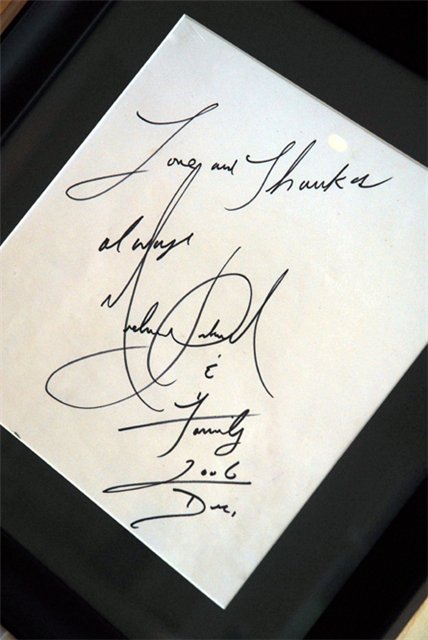 Love and Thanks
always
Michael Jackson
&
Family
2006
Dec.